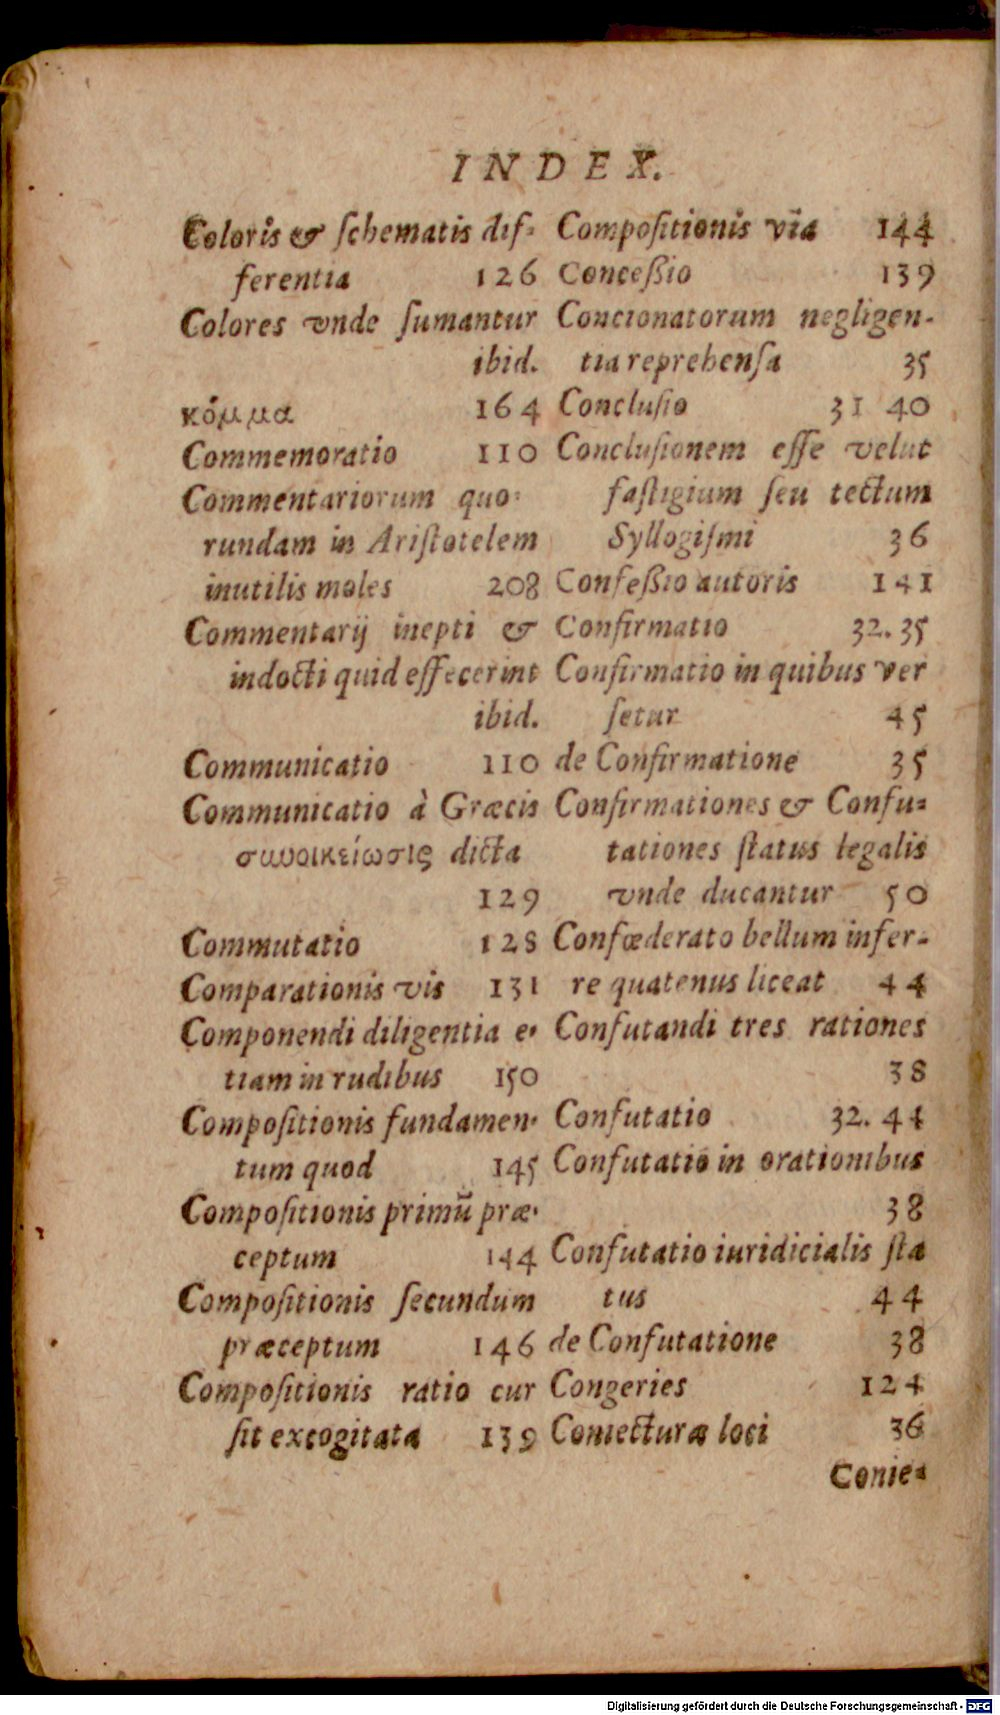 INDEX.
Coloris & ſchematis dif-
ferentia 126
Colores vnde ſumantur
ibid.
κόμμα 164
Commemoratio 110
Commentariorum quo-
rundam in Ariſtotelem
inutilis moles 208
Commentarij inepti &
indocti quid effecerint
ibid.
Communicatio 110
Communicatio à Græcis
συνοικείωσις dicta
129
Commutatio 128
Comparationis vis 131
Componendi diligentia e-
tiam in rudibus 150
Compoſitionis fundamen-
tum quod 145
Compoſitionis primũ præ-
ceptum 144
Compoſitionis ſecundum
præceptum 146
Compoſitionis ratio cur
ſit excogitata 139
Compoſitionis via 144
Conceßio 139
Concionatorum negligen-
tia reprehenſa 35
Concluſio 31 40
Concluſionem eſſe velut
faſtigium ſeu tectum
Syllogiſmi 36
Confeßio autoris 141
Confirmatio 32. 35
Confirmatio in quibus ver
ſetur 45
de Confirmatione 35
Confirmationes & Confu-
tationes ſtatus legalis
vnde ducantur 50
Confœderato bellum infer-
re quatenus liceat 44
Confutandi tres rationes
38
Confutatio 32. 44
Confutatio in orationibus
38
Confutatio iuridicialis ſta
tus 44
de Confutatione 38
Congeries 124
Coniecturæ loci 36
Conie-
Digitalisierung gefördert durch die Deutsche Forschungsgemeinschaft - DFG